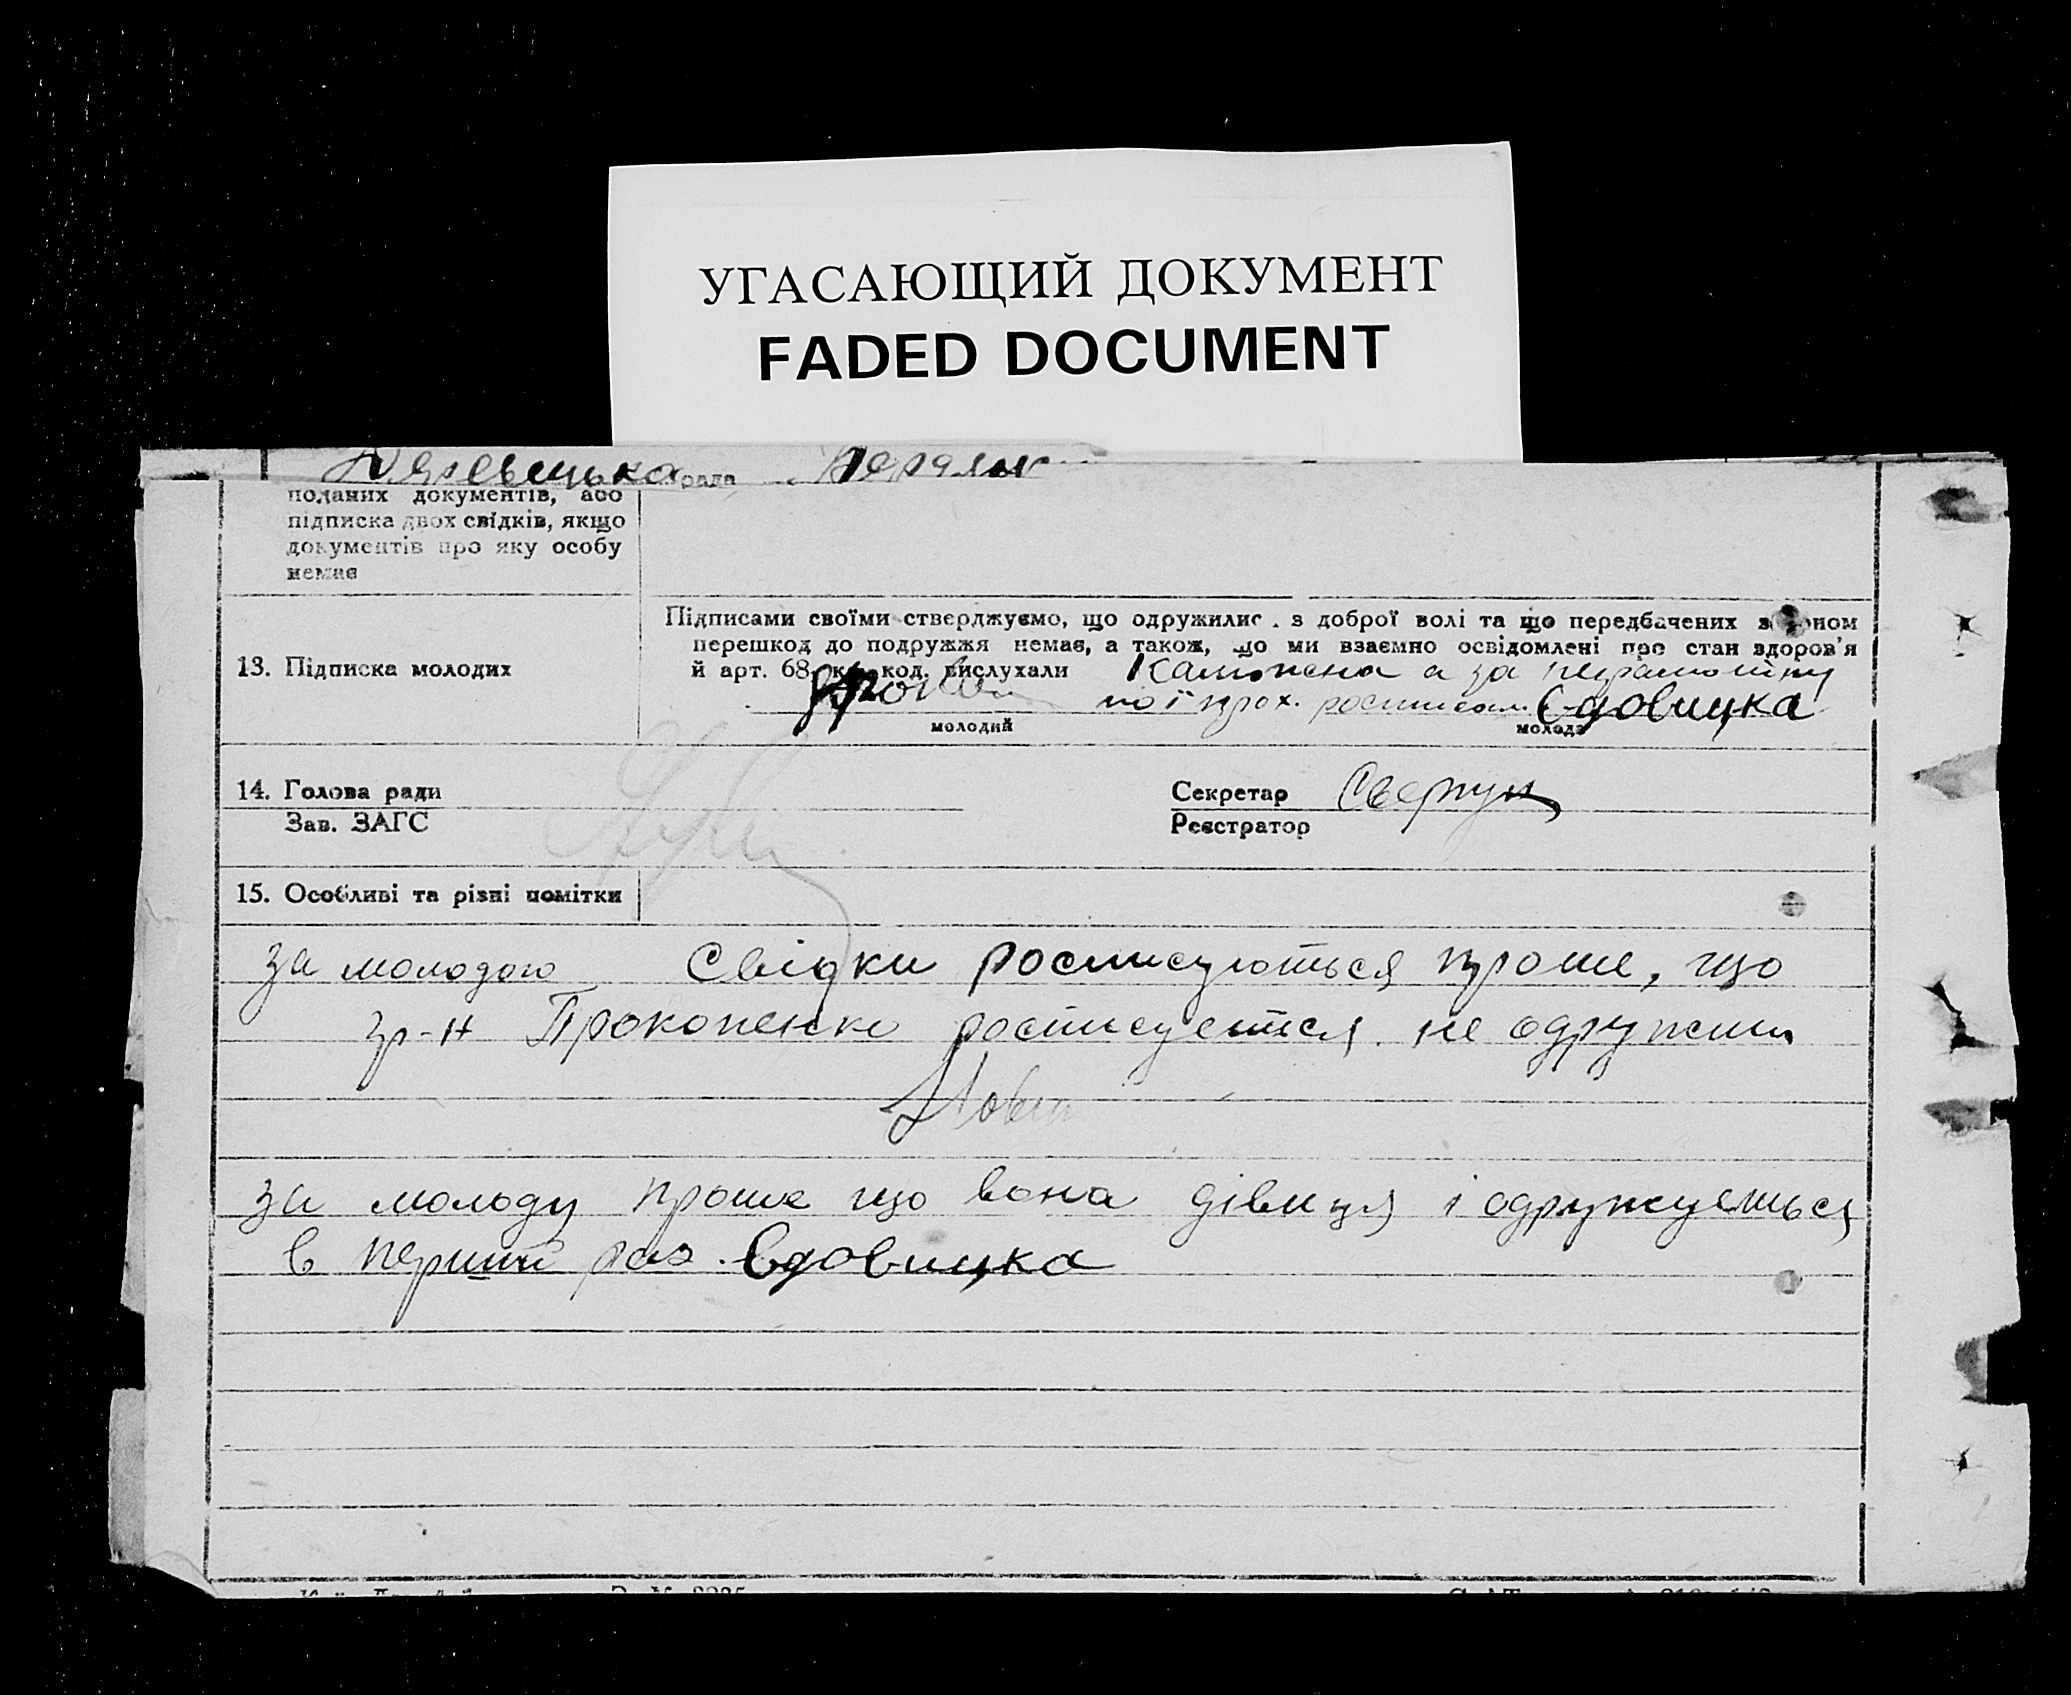 УГАСАЮЩИЙ ДОКУМЕНТ
FADED DOCUMENT
рада
поданих документів, або
підписка двох свідків, якщо
документів про яку особу
немає
13. Підписка молодих
Підписами своїми стверджуємо, що одружилис з доброї волі та що передбачених з ном
перешкод до подружжя немає, а також, що ми взаємно освідомлені про стан здоров'я
й арт. 68 код. вислухали
а за неграмотну
по її прох. Вдовицка
молодий
молода
14. Голова ради
Секретар
Зав. ЗАГС
Реєстратор
15. Особливі та різні помітки
за молодого Свідки росписуються проте, що
гр-н Прокопенко росписується не одружин
за молоду проте що вона дівиця і одружується
в перший раз. Вдовицка